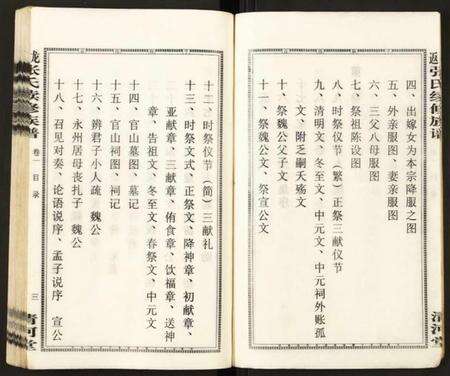 张氏续修族谱
四、出嫁女为本宗降服之图
五、外亲服图、妻亲服图
六、三父八母服图
七、祭祖陈设图
八、时祭仪节（繁）正祭三献仪节
九、清明文、冬至文、中元文、中元祠外账孤
文、附乏嗣夭殇文
十、祭魏公父子文
十一、祭魏公文、祭宣公文
清河堂
张氏续修族谱
卷一
目录
三
清河堂
十二、时祭仪节（简）三献礼
十三、时祭文式、正祭文、降神章、初献章、
亚献章、三献章、侑食章、饮福章、送神
章、告祖文、冬至文、春祭文、中元文
十四、官山图、墓记
十五、官山祠图、祠记
十六、辨君子小人疏 魏公
十七、永州居母丧扎子 魏公
十八、召见对奏、论语说序、孟子说序 宣公